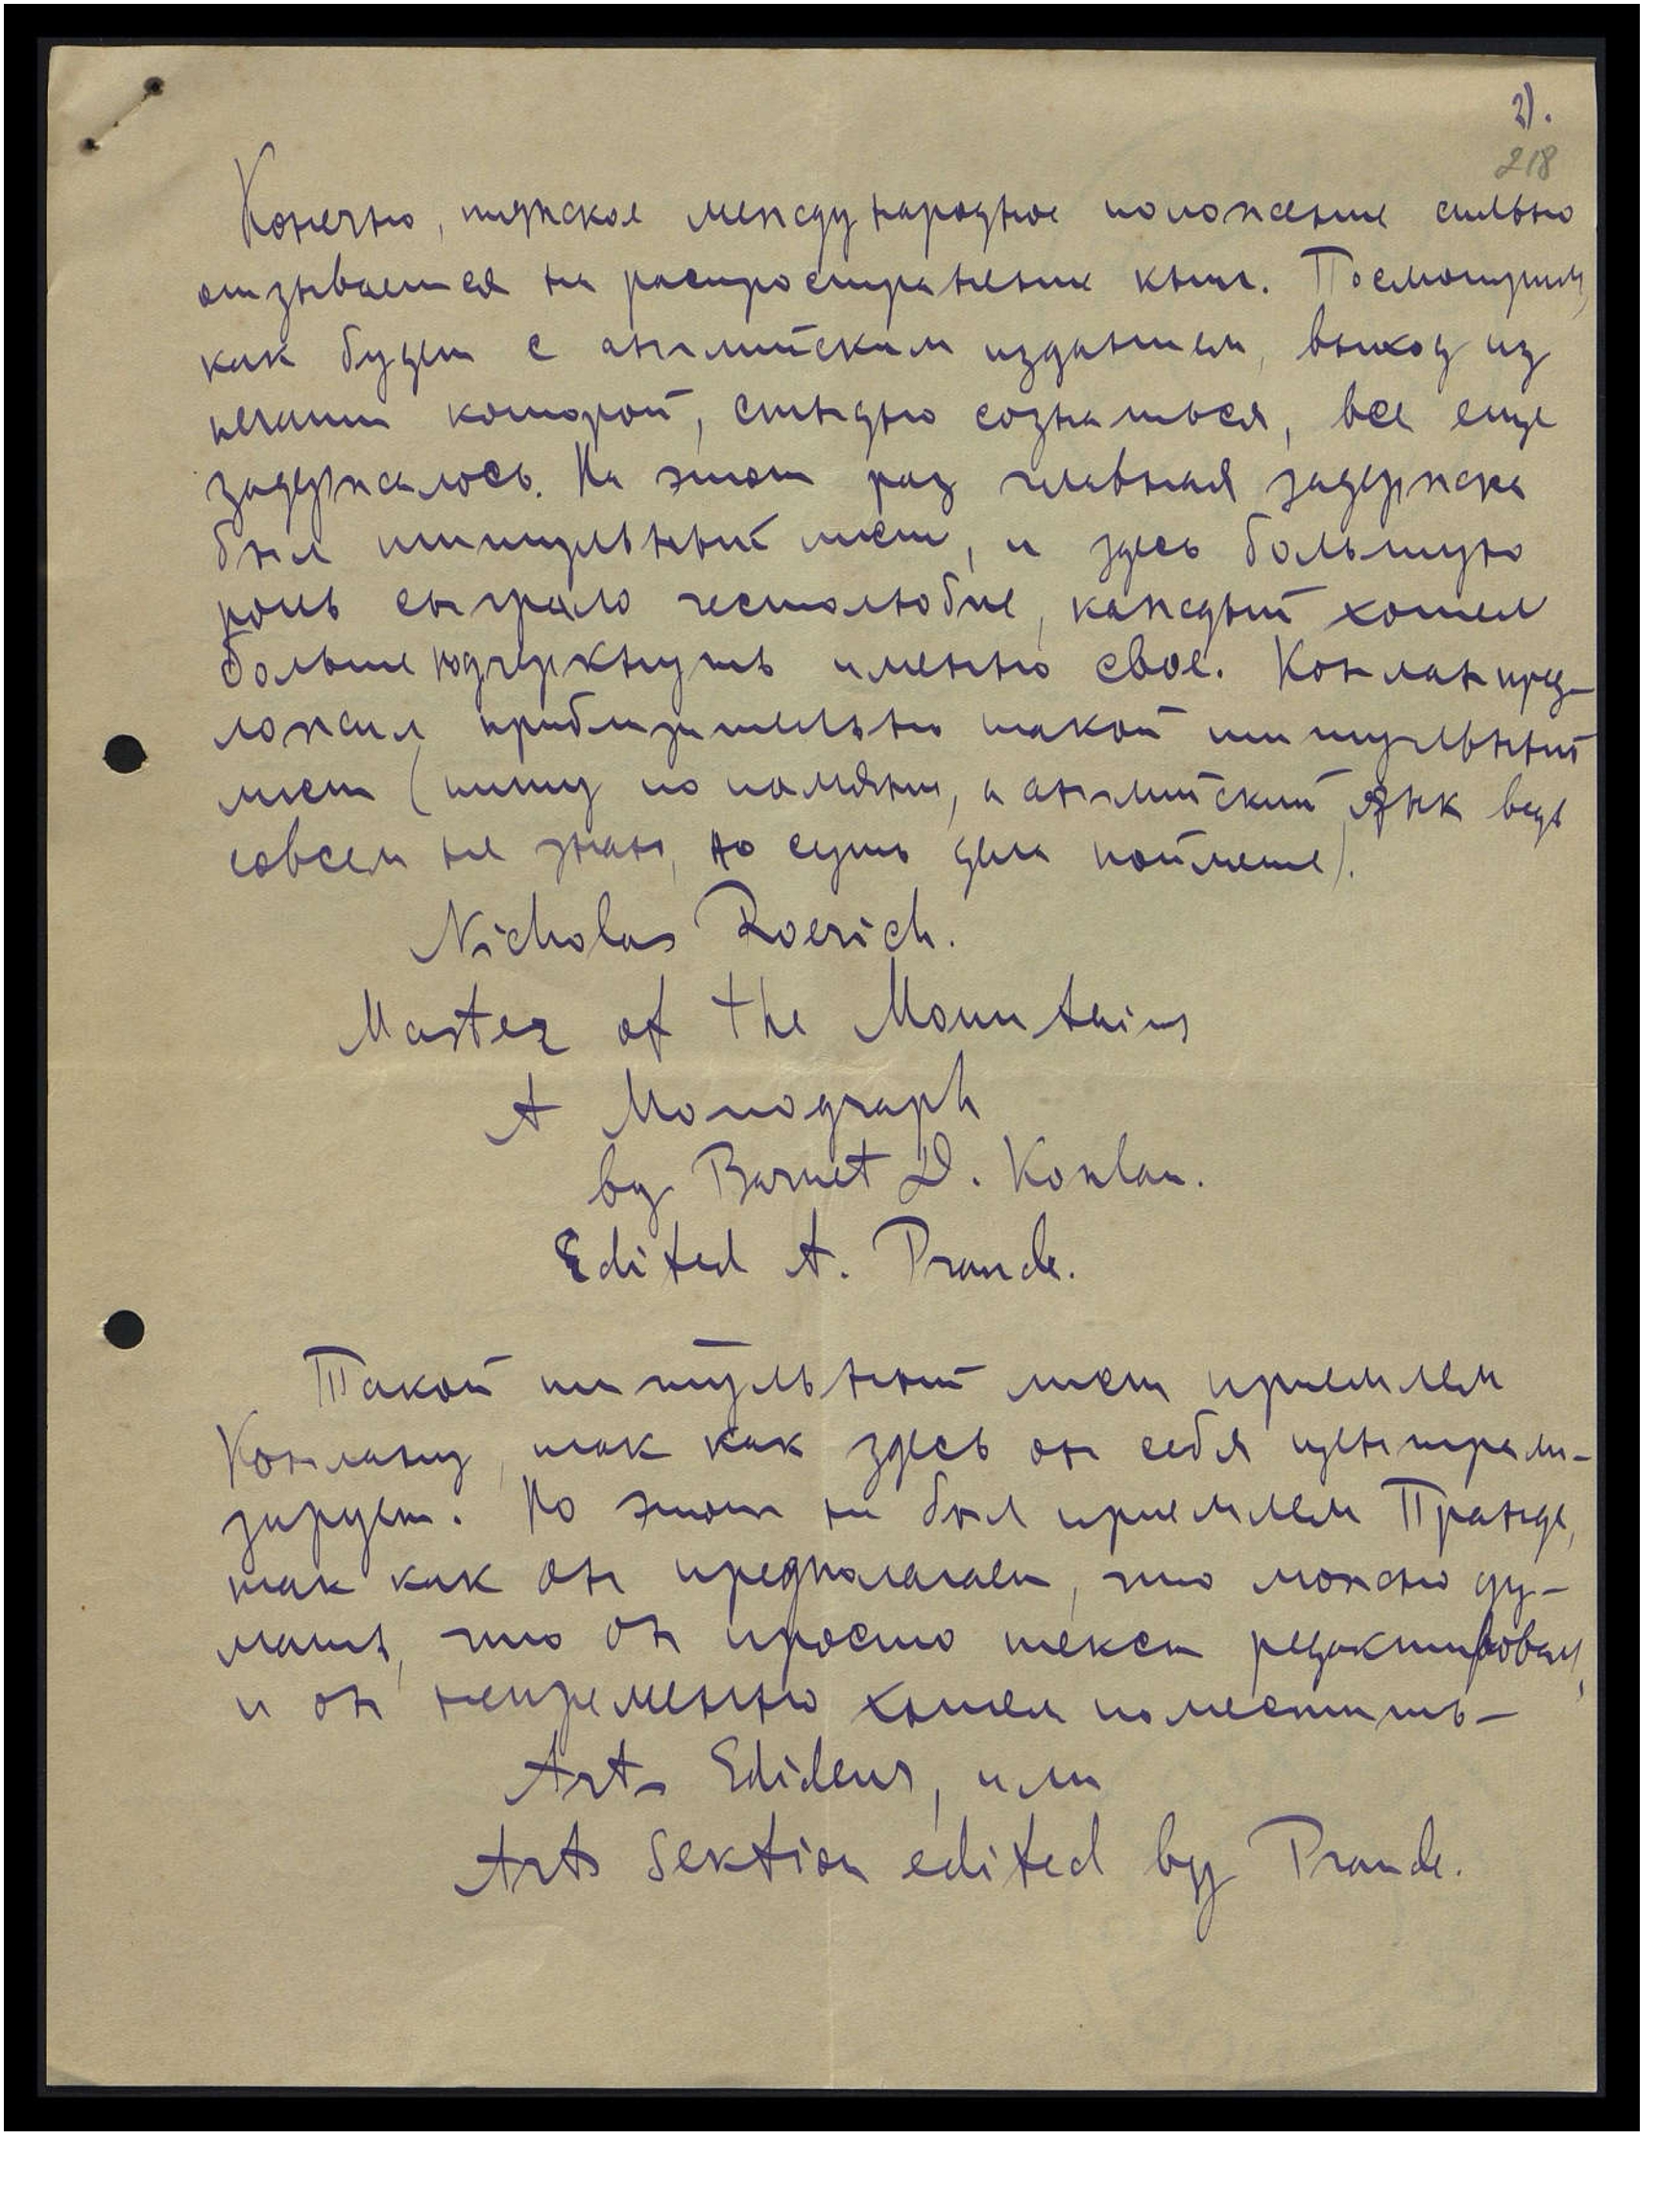 2).
218
Конечно, тяжкое международное положение сильно
отзывается на распространении книг. Посмотрим,
как будет с английским изданием, выход из
печати которой, стыдно сознаться, все еще
задержалось. На этот раз главная задержка
был титульный лист, и здесь большую
роль сыграло честолюбие, каждый хотел
больше подчеркнуть именно свое. Конлан пред-
ложил приблизительно такой титульный
лист (пишу по памяти, а английский язык ведь
совсем не знаю, но суть дела поймете).
Nicholas Roerich.
Master of the Mountains
A Monograph
by Barnet D. Konlan.
Edited A. Prande.
Такой титульный лист приемлем
Конлану, так как здесь он себя централи-
зирует. Но этот не был приемлем Пранде,
так как он предполагает, что можно ду-
мать, что он просто текст редактировал,
и он непременно хотел поместить –
Arts Editeur, или
Arts Sektion edited by Prande.